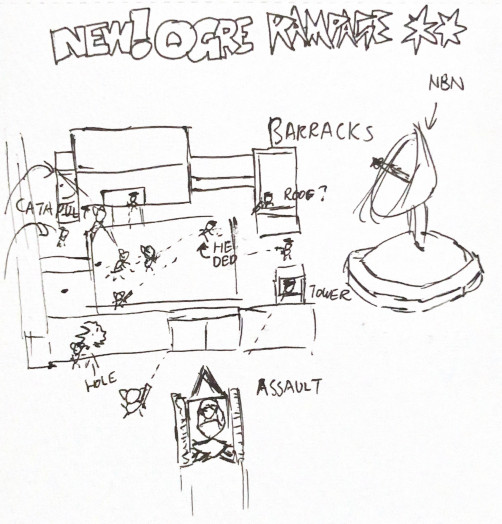 NEW! OGRE RAMPAGE **
NBN
BARRACKS
ROOF?
HE
DED
TOWER
HOLE
ASSAULT